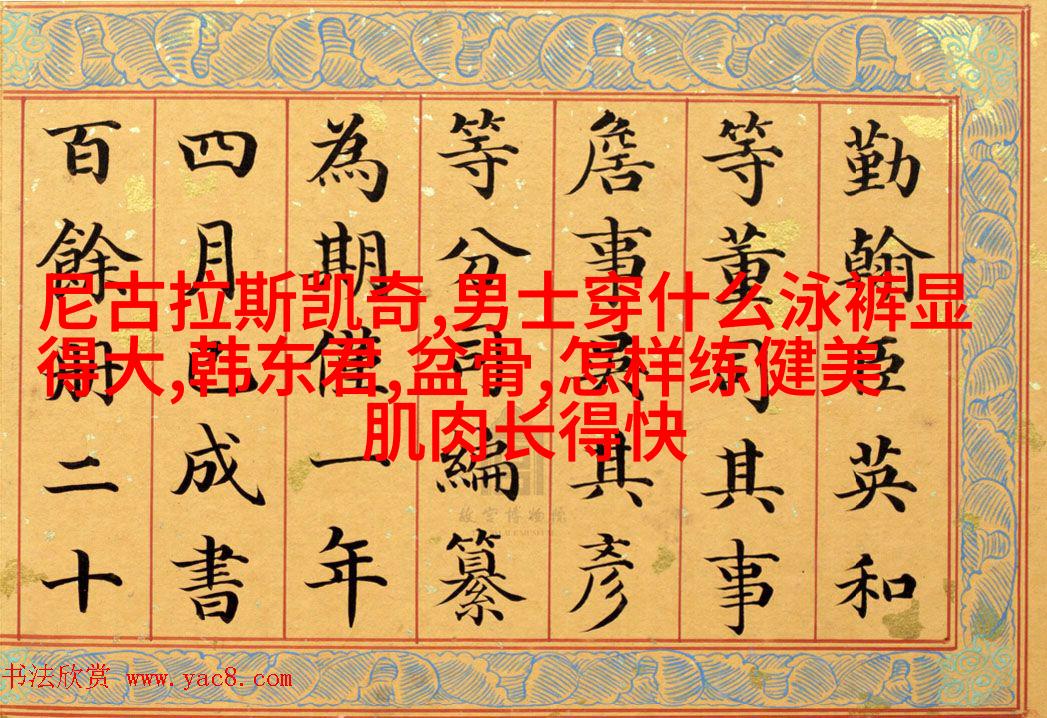 勤翰臣英和
等董司其事
詹事其彦
等分司編纂
為期僅一年
四月已成書
百餘冊二十
尼古拉斯凯奇,男士穿什么泳裤显
得大,韩东君,盆骨,怎样练健美
肌肉长得快
故宫博物院
书法欣赏 www.yac8.com